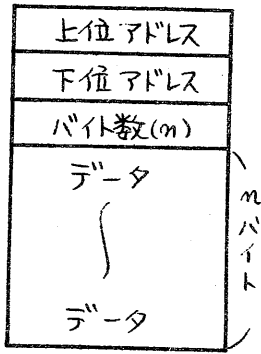 上位アドレス
下位アドレス
バイト数(n)
データ
データ
nバイト